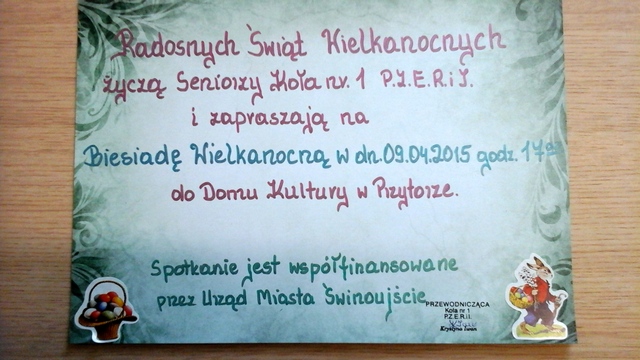 Radosnych Świąt Wielkanocnych
życzą Seniorzy Koła nr. 1 P.Z.E.R.i I.
i zapraszają na
Biesiadę Wielkanocną w dn. 09.04.2015 godz. 17⁰⁰
do Domu Kultury w Przytorze.
Spotkanie jest współfinansowane
przez Urząd Miasta Świnoujście
PRZEWODNICZĄCA
Koła nr 1
P.Z.E.R.iI.
Krystyna